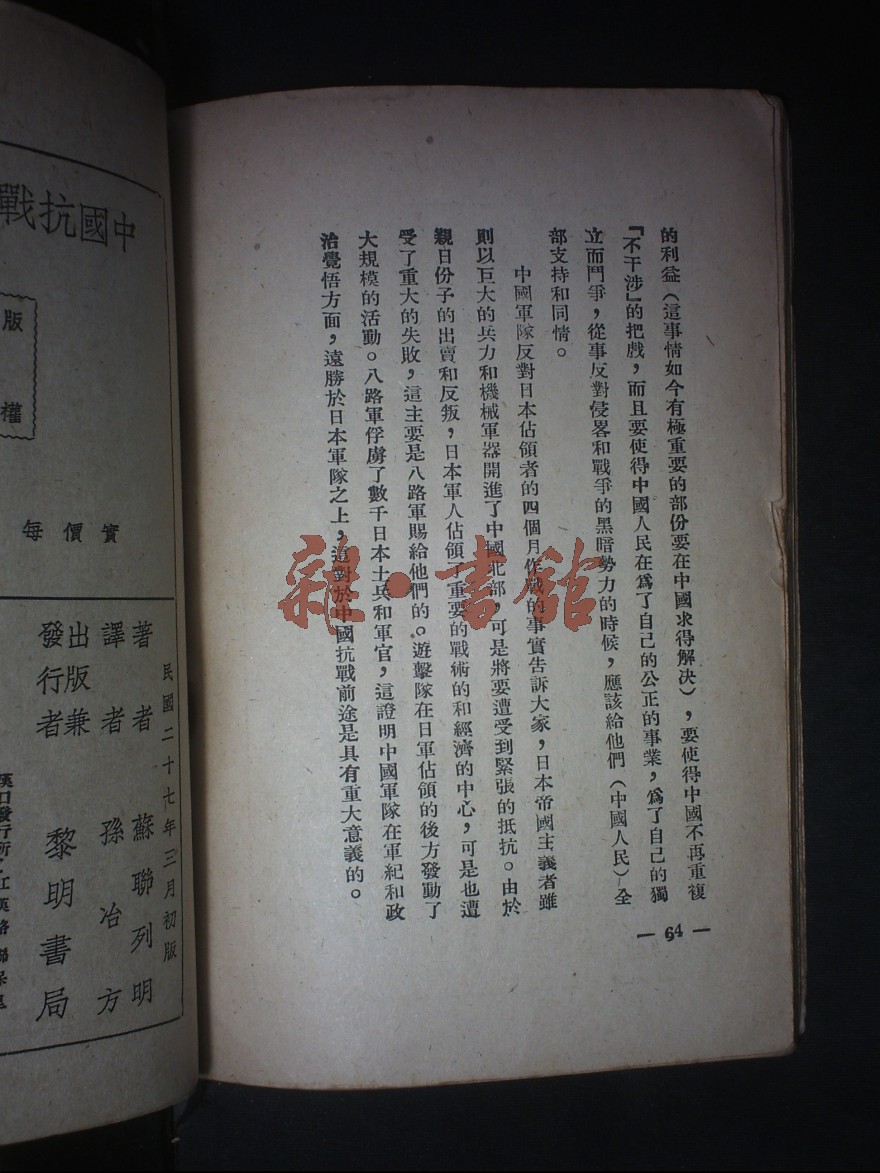 的利益(這事情如今有極重要的部份要在中國求得解決),要使得中國不再重複
『不干涉』的把戲,而且要使得中國人民在爲了自己的公正的事業,爲了自己的獨
立而鬥爭,從事反對侵畧和戰爭的黑暗勢力的時候,應該給他們(中國人民)全
部支持和同情。
中國軍隊反對日本佔領者的四個月作戰的事實告訴大家,日本帝國主義者雖
則以巨大的兵力和機械軍器開進了中國北部,可是將要遭受到緊張的抵抗。由於
親日份子的出賣和反叛,日本軍人佔領了重要的戰術的和經濟的中心,可是也遭
受了重大的失敗,這主要是八路軍賜給他們的。遊擊隊在日軍佔領的後方發動了
大規模的活動。八路軍俘虜了數千日本士兵和軍官,這證明中國軍隊在軍紀和政
治覺悟方面,遠勝於日本軍隊之上,這對於中國抗戰前途是具有重大意義的。
— 64 —
雜·書館
中國抗戰
版權
實價每
民國二十七年三月初版
著者 蘇聯列明
譯者 孫冶方
出版兼
發行者 黎明書局
漢口發行所